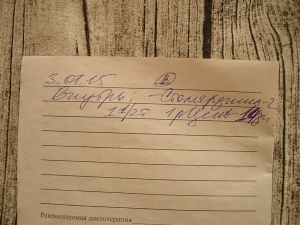 3.01.15 В
Внутрь: - Стомерджил-2
1 1/2т 1р/день
Рекомендуемая диетотерапия